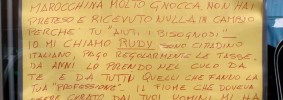 MAROCCHINA MOLTO GNOCCA. NON HAI
PRETESO E RICEVUTO NULLA IN CAMBIO
PERCHÉ TU "AIUTI, I BISOGNOSI"
IO MI CHIAMO RUDY SONO CITTADINO
ITALIANO, PAGO REGOLARMENTE LE TASSE
DA ANNI LO PRENDO NEL CULO DA
TE E DA TUTTI QUELLI CHE FANNO LA
TUA "PROFESSIONE". IL FIUME CHE DOVEVA
ESSERE CURATO DAI TUOI UOMINI MI HA